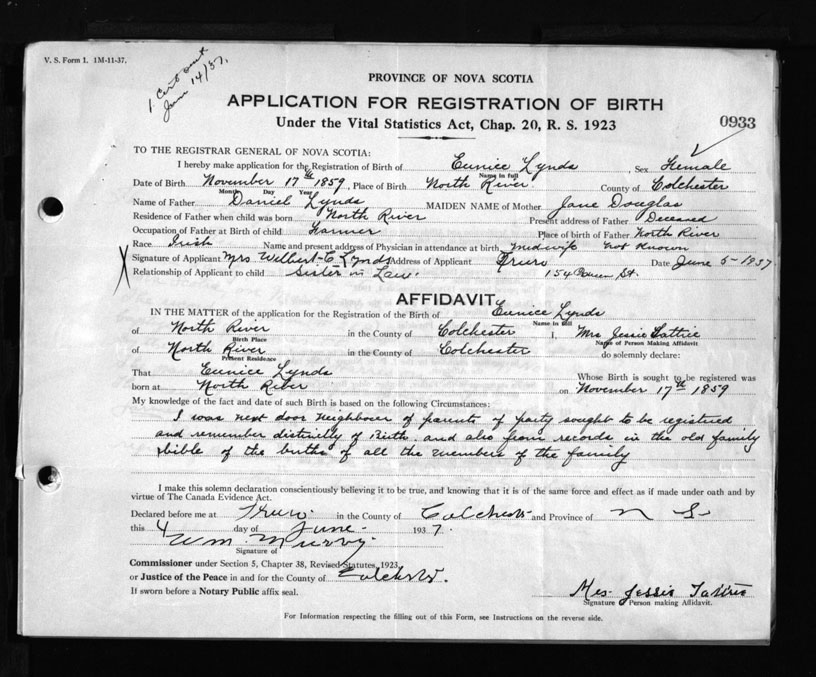 V. S. Form 1. 1M-11-37.
1 Cert sent
June 14/37.
PROVINCE OF NOVA SCOTIA
APPLICATION FOR REGISTRATION OF BIRTH
0933
Under the Vital Statistics Act, Chap. 20, R. S. 1923
TO THE REGISTRAR GENERAL OF NOVA SCOTIA:
I hereby make application for the Registration of Birth of Eunice Lynds, Sex Female
Name in full
Date of Birth November 17th 1859, Place of Birth North River. County of Colchester
Month Day Year
Name of Father Daniel Lynds MAIDEN NAME of Mother Jane Douglas
Residence of Father when child was born North River Present address of Father Deceased
Occupation of Father at Birth of child Farmer Place of birth of Father North River
Race Irish Name and present address of Physician in attendance at birth midwife not known
X Signature of Applicant Mrs Welbert C Lynds Address of Applicant Truro Date June 5 - 1937
Relationship of Applicant to child Sister in Law. 154 St.
AFFIDAVIT
IN THE MATTER of the application for the Registration of the Birth of Eunice Lynds
Name in full
of North River in the County of Colchester I, Mrs Jessie Tattrie
Birth Place Name of Person Making Affidavit
of North River in the County of Colchester do solemnly declare:
Present Residence
That Eunice Lynds Whose Birth is sought to be registered was
born at North River on November 17th 1859
My knowledge of the fact and date of such Birth is based on the following Circumstances:
I was next door neighbour of parents of party sought to be registered
and remember distinctly of Birth. and also from records in the old family
bible of the births of all the members of the family
I make this solemn declaration conscientiously believing it to be true, and knowing that it is of the same force and effect as if made under oath and by
virtue of The Canada Evidence Act.
Declared before me at Truro in the County of Colchester and Province of N S
this 4 day of June 1937.
Wm. Murray
Signature of
Commissioner under Section 5, Chapter 38, Revised Statutes, 1923,
or Justice of the Peace in and for the County of Colchester.
If sworn before a Notary Public affix seal.
Mrs Jessie Tattrie
Signature of Person making Affidavit.
For Information respecting the filling out of this Form, see Instructions on the reverse side.